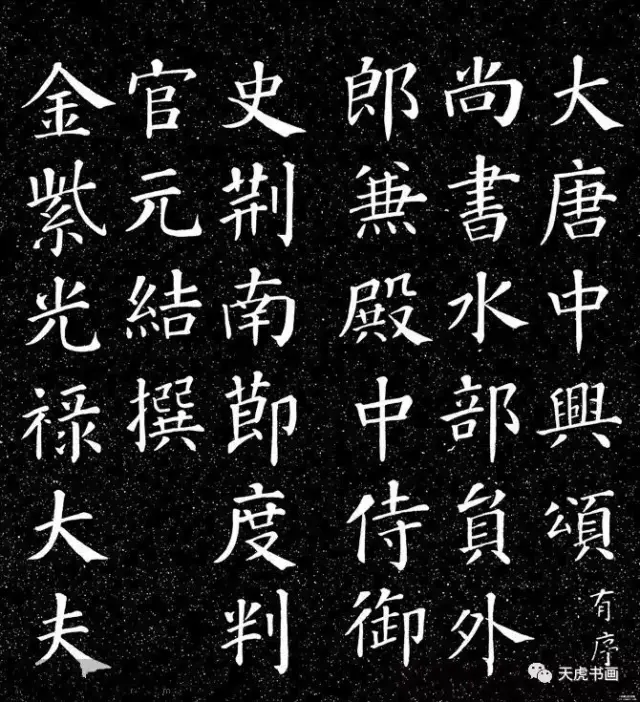 大唐中興頌有序
尚書水部負外
郎兼殿中侍御
史荆南節度判
官元結撰
金紫光禄大夫
天虎书画